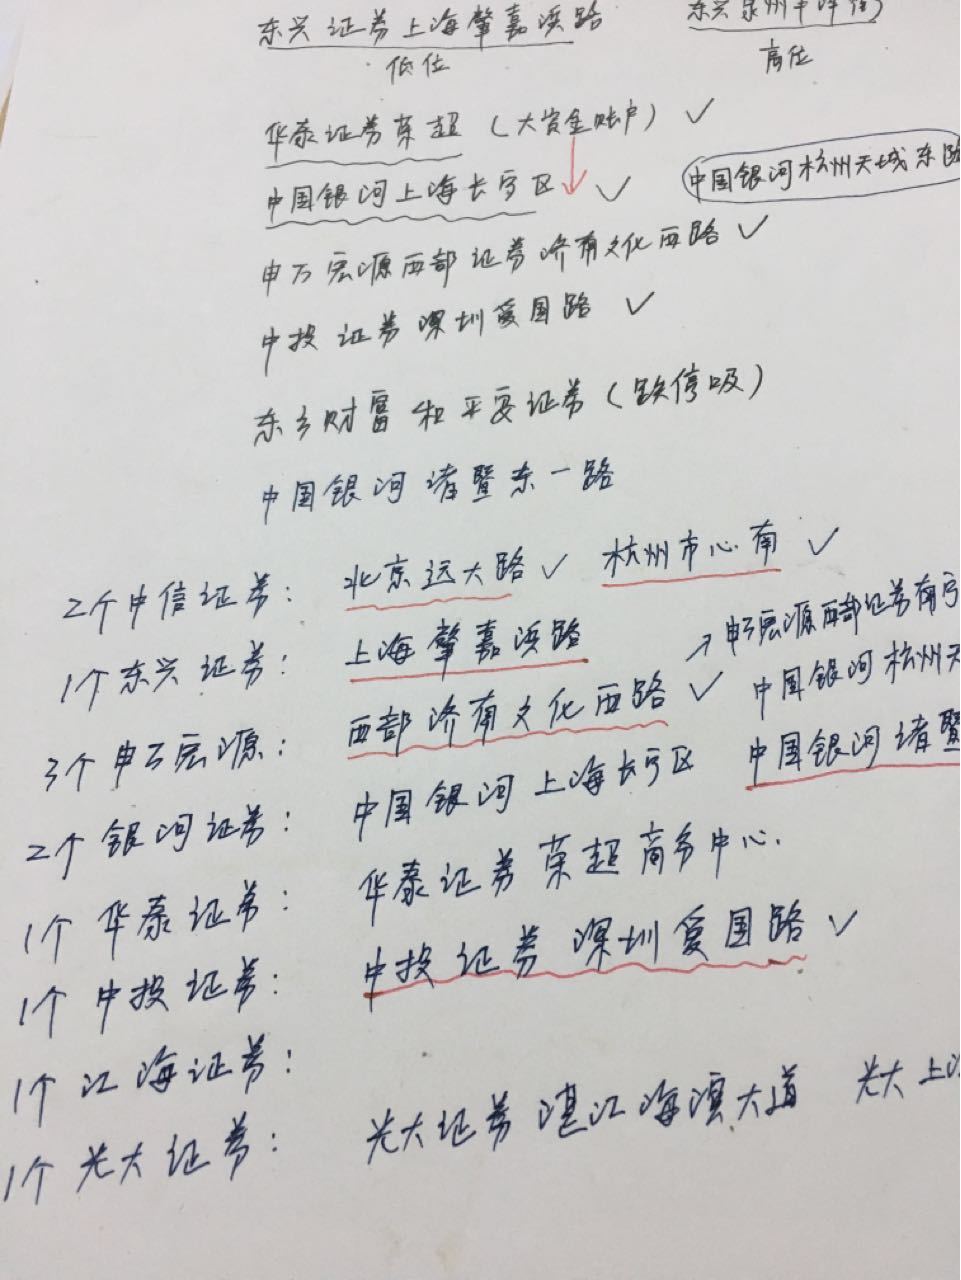 东兴证券上海肇嘉浜路 东兴泉州丰泽街
低位 高位
华泰证券荣超（大资金账户）✓
中国银河上海长宁区 ✓ 中国银河杭州天城东路
申万宏源西部证券济南文化西路 ✓
中投证券深圳爱国路 ✓
东方财富和平安证券（跌停吸）
中国银河诸暨东一路
2个中信证券： 北京远大路 ✓ 杭州市心南 ✓
1个东兴证券： 上海肇嘉浜路 → 申万宏源西部证券有
3个申万宏源： 西部济南文化西路 ✓ 中国银河杭州天
2个银河证券： 中国银河上海长宁区 中国银河诸暨
1个华泰证券： 华泰证券荣超商务中心.
1个中投证券： 中投证券深圳爱国路 ✓
1个江海证券：
1个光大证券： 光大证券湛江海滨大道 光大上